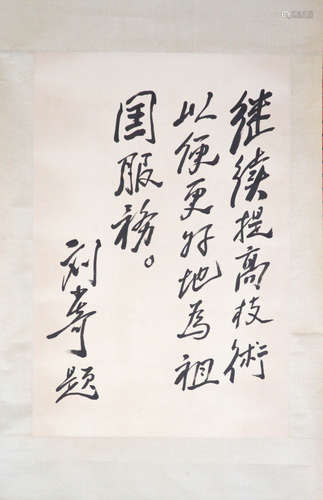 继续提高技術
以便更好地為祖
国服務。
刘少奇题